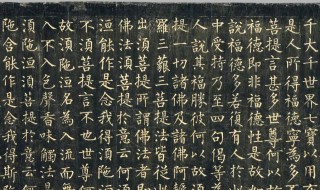 千大千世界七寶以用
是人所得福德寧為多
菩提言甚多世尊何以故
福德即非福德性是故
說福德多若復有人於
中受持乃至四句偈等
人說其福勝彼何以故
提一切諸佛及諸佛阿耨
羅三藐三菩提法皆從此
出湏菩提所謂佛法者
佛法湏菩提於意云何
洹能作是念我得湏陀
不湏菩提言不也世尊何
故湏陀洹名為入流而無
入不入色聲香味觸法是
湏陀洹湏菩提於意云何
陀含能作是念我得斯